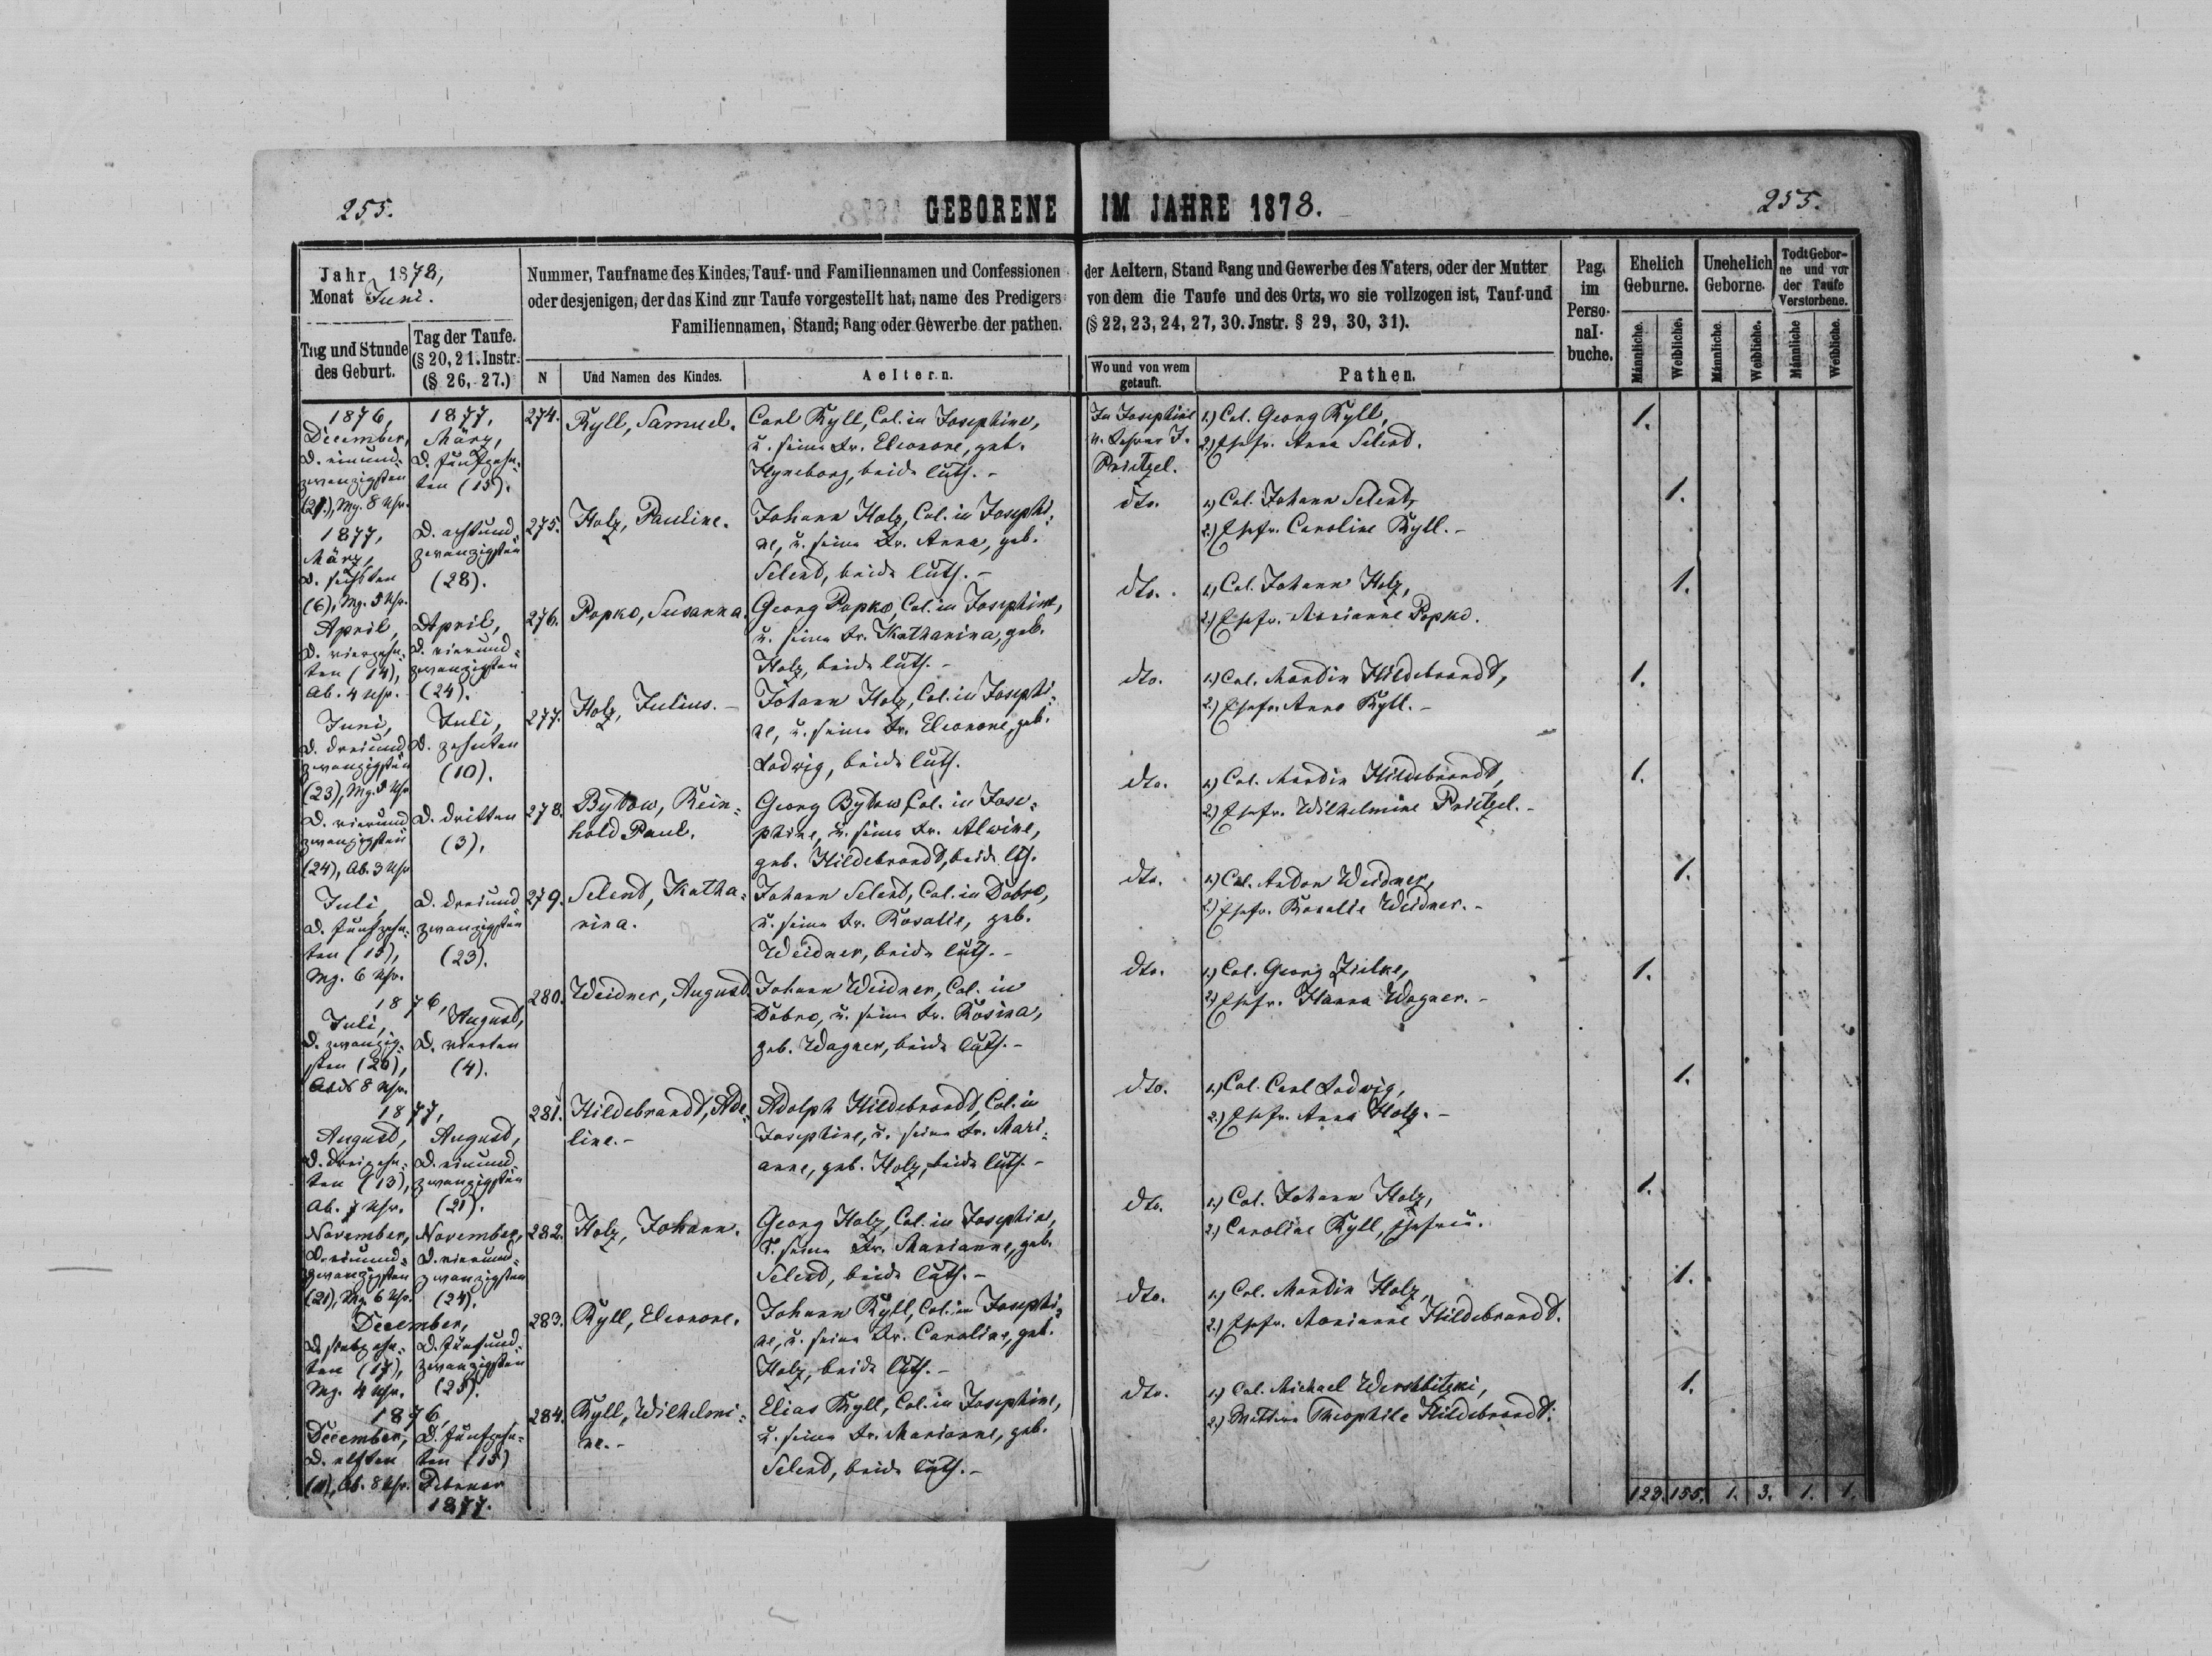 255.
GEBORENE IM JAHRE 1878.
255.
Jahr 1878,
Monat Juni.
Tag und Stunde des Geburt.
Tag der Taufe. (§ 20, 21. Instr. (§ 26, 27.)
Nummer, Taufname des Kindes, Tauf- und Familiennamen und Confessionen der Aeltern, Stand Rang und Gewerbe des Vaters, oder der Mutter
oder desjenigen, der das Kind zur Taufe vorgestellt hat, name des Predigers von dem die Taufe und des Orts, wo sie vollzogen ist, Tauf-und
Familiennamen, Stand; Rang oder Gewerbe der pathen. (§ 22, 23, 24, 27, 30. Jnstr. § 29, 30, 31).
N
Und Namen des Kindes.
Aeltern.
Wo und von wem getauft.
Pathen.
Pag. im Perso-nal-buche.
Ehelich Geburne.
Unehelich Geborne.
Todt Gebor-ne und vor der Taufe Verstorbene.
Männliche.
Weibliche.
Männliche.
Weibliche.
Männliche
Weibliche.
1876,
December,
D. einund-
zwanzigsten
(21.), Mg. 8 Uhr.
1877,
März,
D. fünfzehn-
ten (15).
274.
Kyll, Samuel.
Carl Kyll, Col. in Josephine,
u. seine Fr. Eleonore, geb.
beide luth. -
In Josephine
v. Lehrer J.
Prietzel.
1.) Col. Georg Kyll,
2.) Ehefr. Anna Selend.
1.
1877,
März,
D. sechsten
(6), Mg. 5 Uhr.
D. achtund-
zwanzigsten
(28).
275.
Holz, Pauline.
Johann Holz, Col. in Josephi-
ne, u. seine Fr. Anna, geb.
Selend, beide luth. -
dto.
1.) Col. Johann Selend,
2.) Ehefr. Caroline Kyll. -
1.
April,
D. vierzehn-
ten (14),
Ab. 4 Uhr.
April,
D. vierund-
zwanzigsten
(24).
276.
Popko, Susanna.
Georg Popko, Col. in Josephine,
u. seine Fr. Katharina, geb.
Holz, beide luth. -
dto.
1.) Col. Johann Holz,
2.) Ehefr. Marianne Popko.
1.
Juni,
D. dreiund-
zwanzigsten
(23), Mg. 5 Uhr
Juli,
D. zehnten
(10).
277.
Holz, Julius. -
Johann Holz, Col. in Josephi-
ne, u. seine Fr. Eleonore, geb.
Ludwig, beide luth.
dto.
1.) Col. Mardin Hildebrandt,
2.) Ehefr. Anna Kyll. -
1.
D. vierund-
zwanzigsten
(24), Ab. 3 Uhr
D. dritten
(3).
278.
Bytow, Rein-
hold Paul.
Georg Bytow, Col. in Jose-
phine, u. seine Fr. Alwine,
geb. Hildebrandt, beide lth.
dto.
1.) Col. Mardin Hildebrandt,
2.) Ehefr. Wilhelmine Prietzel. -
1.
Juli,
D. fünfzehn-
ten (15),
Mg. 6 Uhr.
D. dreiund-
zwanzigsten
(23).
279.
Selend, Katha-
rina.
Johann Selend, Col. in Dobro,
u. seine Fr. Rosalie, geb.
Weidner, beide luth. -
dto.
1.) Col. Andon Weidner,
2.) Ehefr. Rosalie Weidner. -
1.
1876,
Juli,
D. zwanzig-
sten (20),
Abds 8 Uhr.
August,
D. vierten
(4).
280.
Weidner, August.
Johann Weidner, Col. in
Dobro, u. seine Fr. Rosina,
geb. Wagner, beide luth. -
dto.
1.) Col. Georg Zielke,
2.) Ehefr. Hanna Wagner. -
1.
1877,
August,
D. dreizehn-
ten (13),
August,
D. einund-
zwanzigsten
(21).
281.
Hildebrandt, Ade-
line. -
Adolph Hildebrandt, Col. in
Josephine, u. seine Fr. Mari-
anne, geb. Holz, beide luth. -
dto.
1.) Col. Carl Ludwig,
2.) Ehefr. Anna Holz. -
1.
November,
D. einund-
zwanzigsten
(21), Mg. 6 Uhr.
November,
D. vierund-
zwanzigsten
(24).
282.
Holz, Johann.
Georg Holz, Col. in Josephine,
u. seine Fr. Marianne, geb.
Selend, beide luth. -
dto.
1.) Col. Johann Holz,
2.) Caroline Kyll, Ehefrau.
1.
December,
D. siebzehn-
ten (17),
Mg. 4 Uhr.
D. fünfund-
zwanzigsten
(25).
283.
Kyll, Eleonore.
Johann Kyll, Col. in Josephi-
ne, u. seine Fr. Caroline, geb.
Holz, beide luth. -
dto.
1.) Col. Mardin Holz,
2.) Ehefr. Marianne Hildebrandt.
1.
1876,
December,
D. elften
(11), Ab. 8 Uhr.
D. fünfzehn-
ten (15)
Februar
1877.
284.
Kyll, Wilhelmi-
ne. -
Elias Kyll, Col. in Josephine,
u. seine Fr. Marianne, geb.
Selend, beide luth. -
dto.
1.) Col. Michael
2.) Theophile Hildebrandt.
1.
123. 155. 1. 3. 1. 1.